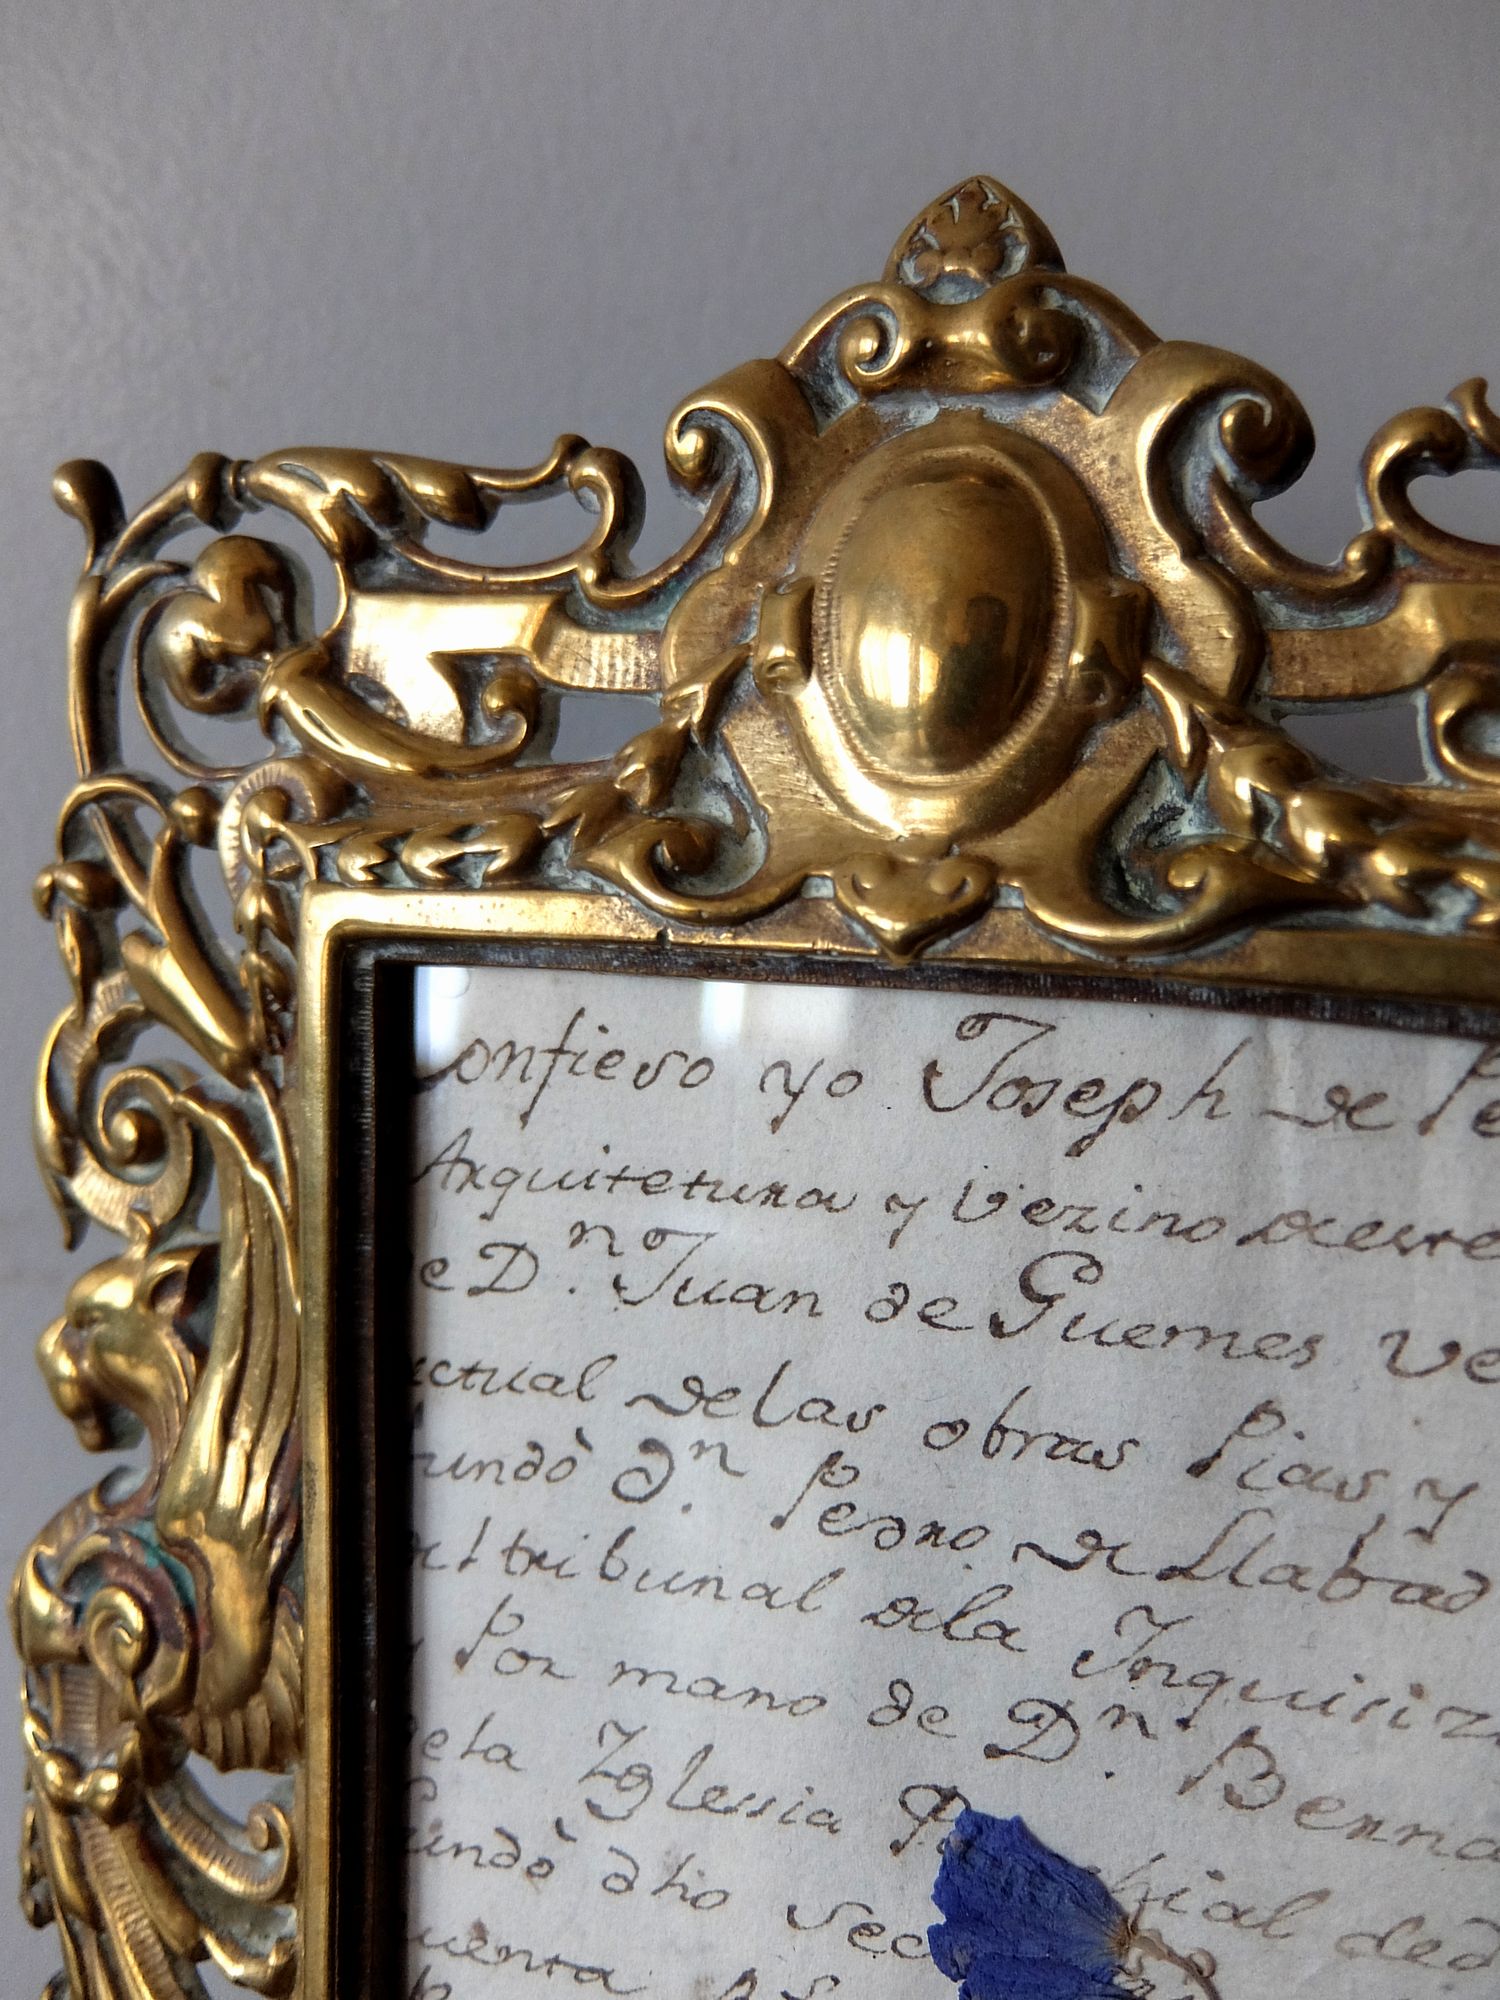 Confieso yo Joseph de Pe
Arquitetura y Vezino deeste
e D.ⁿ Juan de Guemes ve
ctual delas obras Pias y
fundò dⁿ. Pedro de Llabad
el tribunal dela Inquisiz
y Por mano de Dⁿ. Berna
dela Yglesia P chial ded
fundò dho sec
uenta